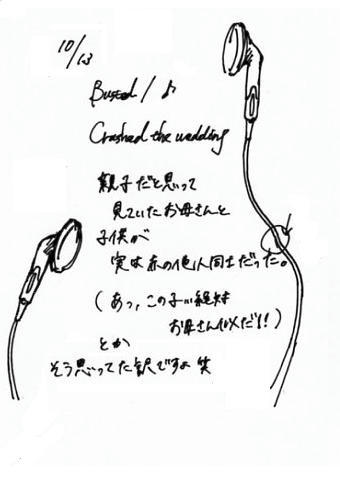 10/13
Busted / ♪
Crashed the wedding
親子だと思って
見ていたお母さんと
子供が
実は赤の他人同士だった。
(あっ、この子は絶対
お母さん似だ!!)
とか
そう思ってた訳ですよ 笑